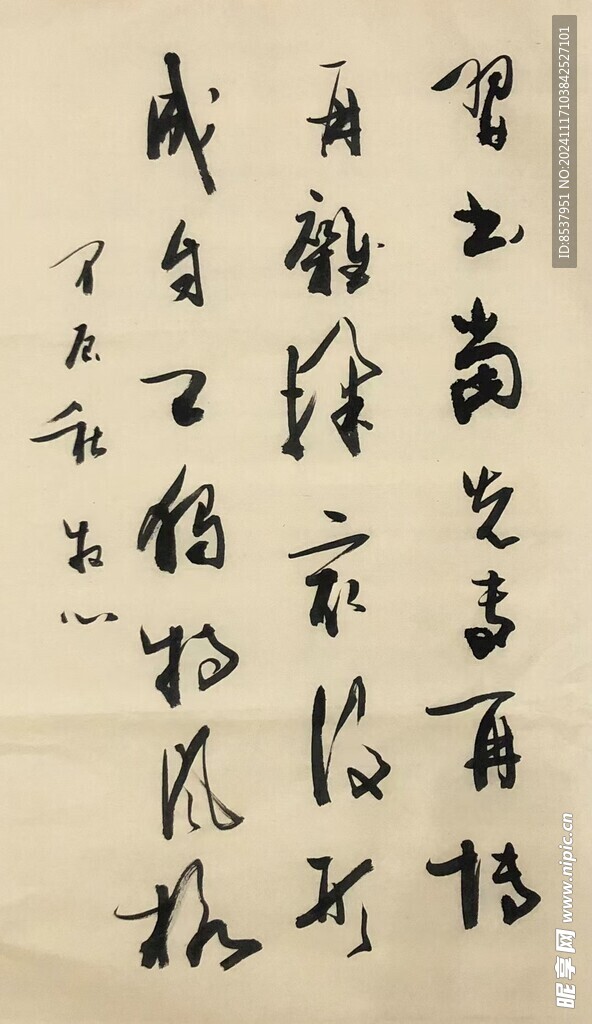 習書當先專再博
再雜揉最後形
成自己獨特風格
甲辰秋 牧心
ID:8537951 NO:20241117103842527101
昵享网 www.nipic.cn